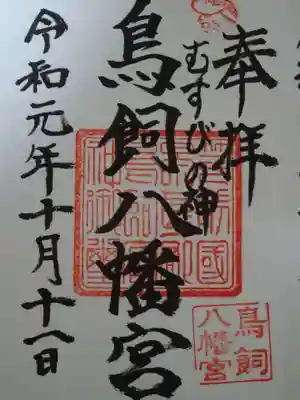 奉拝
むすびの神
鳥飼八幡宮
令和元年十月十八日
鳥飼
八幡宮